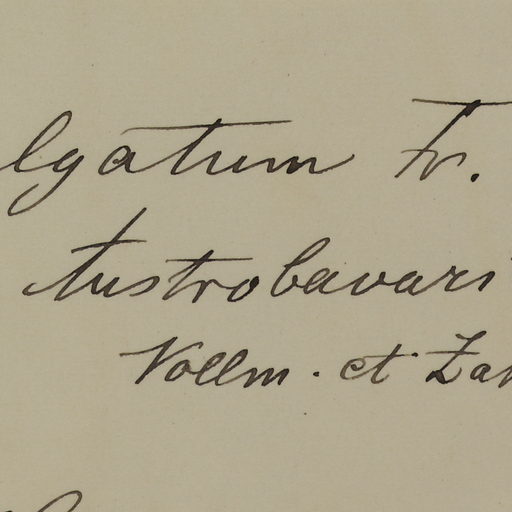 lgatum Fr.
Austrobavari
Vollm. et Zah